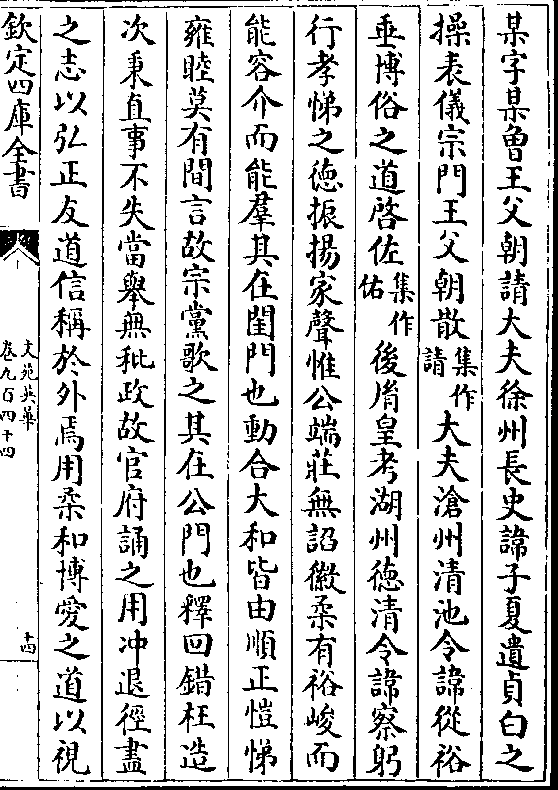 某字某曾王父朝請大夫徐州長史諱子夏遺貞白之
操表儀宗門王父朝散集作請大夫滄州清池令諱從裕
垂博俗之道啓佐集作佑後胤皇考湖州徳清令諱察躬
行孝悌之徳振揚家聲惟公端莊無諂徽柔有裕峻而
能容介而能羣其在閨門也動合大和皆由順正愷悌
雍睦莫有間言故宗黨歌之其在公門也釋回錯枉造
次秉直事不失當舉無秕政故官府誦之用冲退徑盡
之志以弘正友道信稱於外焉用柔和博愛之道以視
欽定四庫全書
文苑英華
卷九百四十四
十四